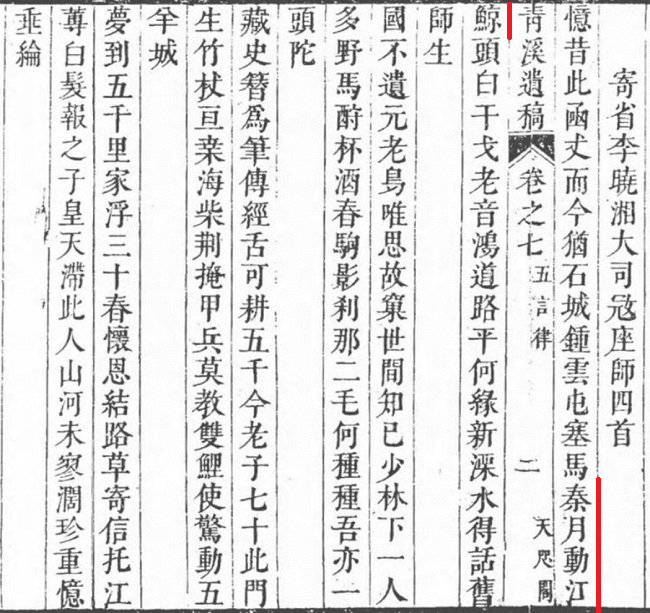 寄省李曉湘大司寇座師四首
憶昔此函丈而今猶石城鍾雲屯塞馬秦月動江
青溪遺稿 卷之七 五言律 二 天咫閣
鯨頭白干戈老音鴻道路平何緣新深水得話舊
師生
國不遺元老鳥唯思故巢世間知己少林下一人
多野馬酹杯酒春駒影刹那二毛何種種吾亦一
頭陀
藏史簪爲筆傳經舌可耕五千今老子七十此門
生竹杖亘桒海柴荆掩甲兵莫教雙鯉使驚動五
羊城
夢到五千里家浮三十春懷恩結路草寄信托江
蓴白髮報之子皇天滯此人山河未寥濶珍重憶
垂綸